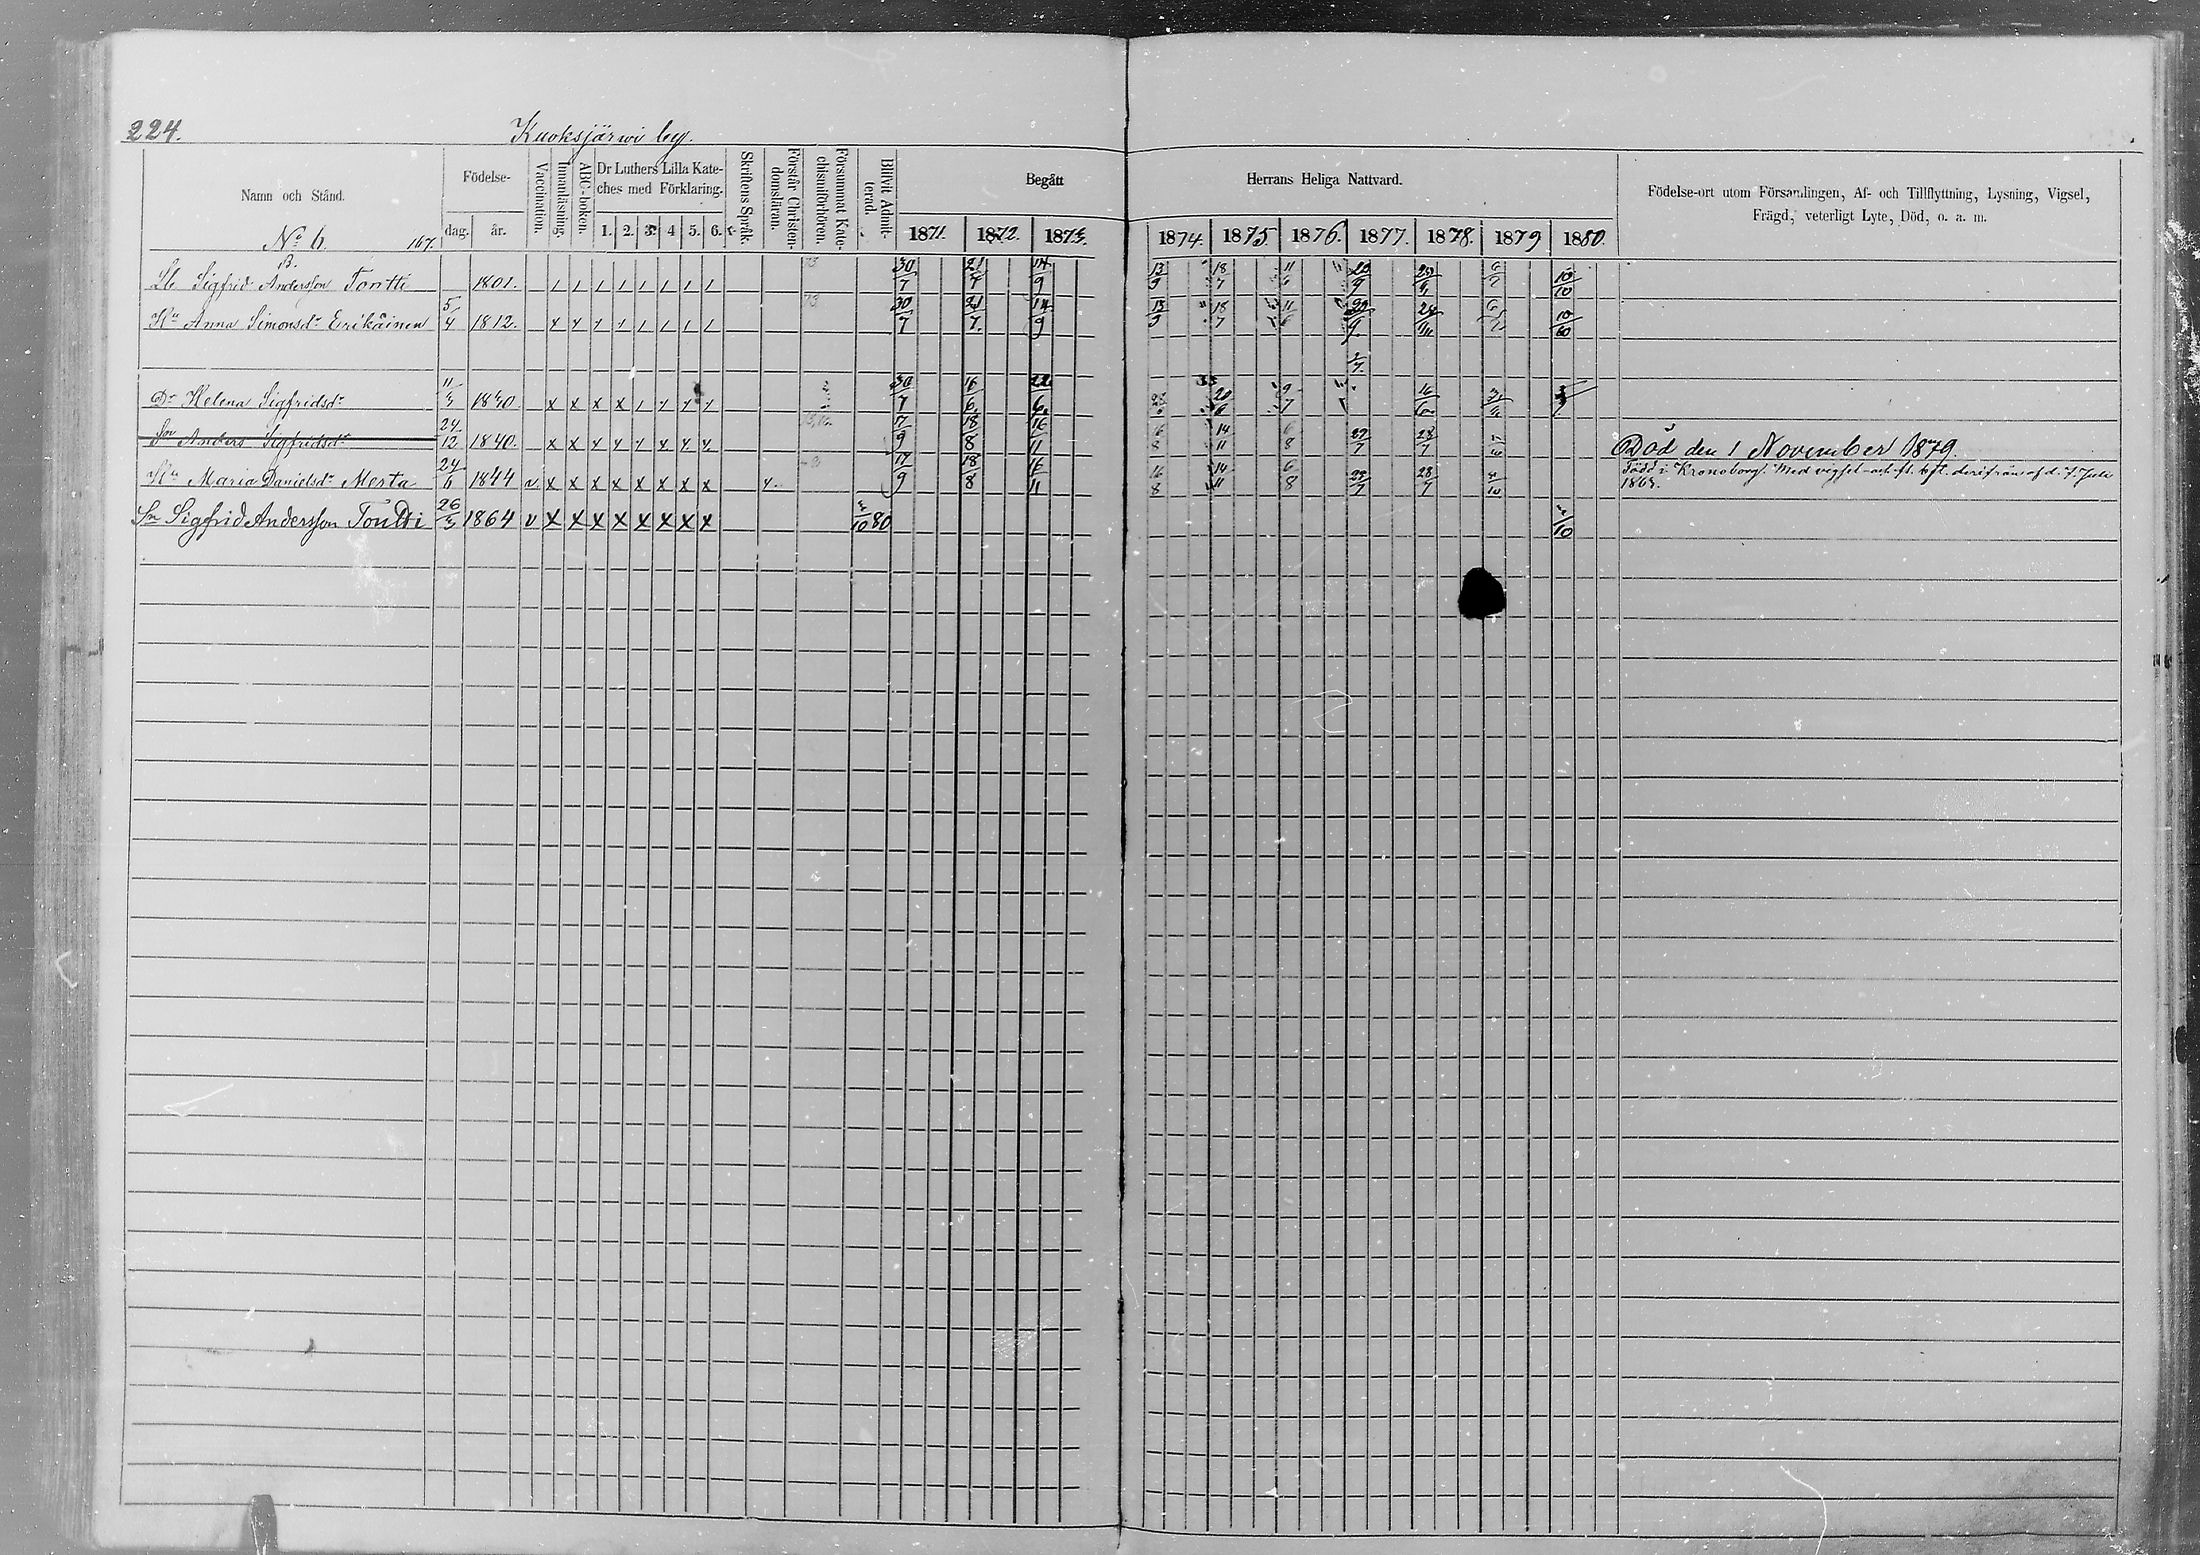 224.
Kuoksjärwi by.
Namn och Stånd.
Födelse-
dag. år.
Vaccination.
Innanläsning.
ABC-boken.
Dr Luthers Lilla Kate-
ches med Förklaring.
1. 2. 3. 4 5. 6.
Skriftens Språk.
Förstår Christen-
domsläran.
Försummat Kate-
chismiförhören.
Blifvit Admit-
terad.
Begått
1871. 1872. 1873.
Herrans Heliga Nattvard.
1874. 1875 1876. 1877. 1878. 1879 1880.
Födelse-ort utom Församlingen, Af- och Tillflyttning, Lysning, Vigsel,
Frägd, veterligt Lyte, Död, o. a. m.
No 6. 167.
Sigfrid Andersson Tontti 1801. 30/7 21/7 14/9 13/9 18/7 10/10
Hu Anna Simonsdr Erikäinen 5/4 1812. 30/7 21/7 14/9 13/9 18/7 10/10
Dr Helena Sigfridsdr 11/3 1840 x x x x 30/7 16/6 22/6 20/6 9/7
Sn Anders Sigfridsdr 24/12 1840. x x 17/9 18/8 16/11 14/11 6/8 28/7 Död den 1 November 1879.
Hu Maria Danielsdr Mesta 24/6 1844 v. x x x x x x x x 17/9 18/8 16/11 16/8 14/11 6/8 28/7 Född i Kronoborg. Med vigsel och fl. bft. derifrån af d. 7 Juli
186
Sn Sigfrid Andersson Tontti 26/3 1864 v x x x x x x x x 3/10 80 3/10